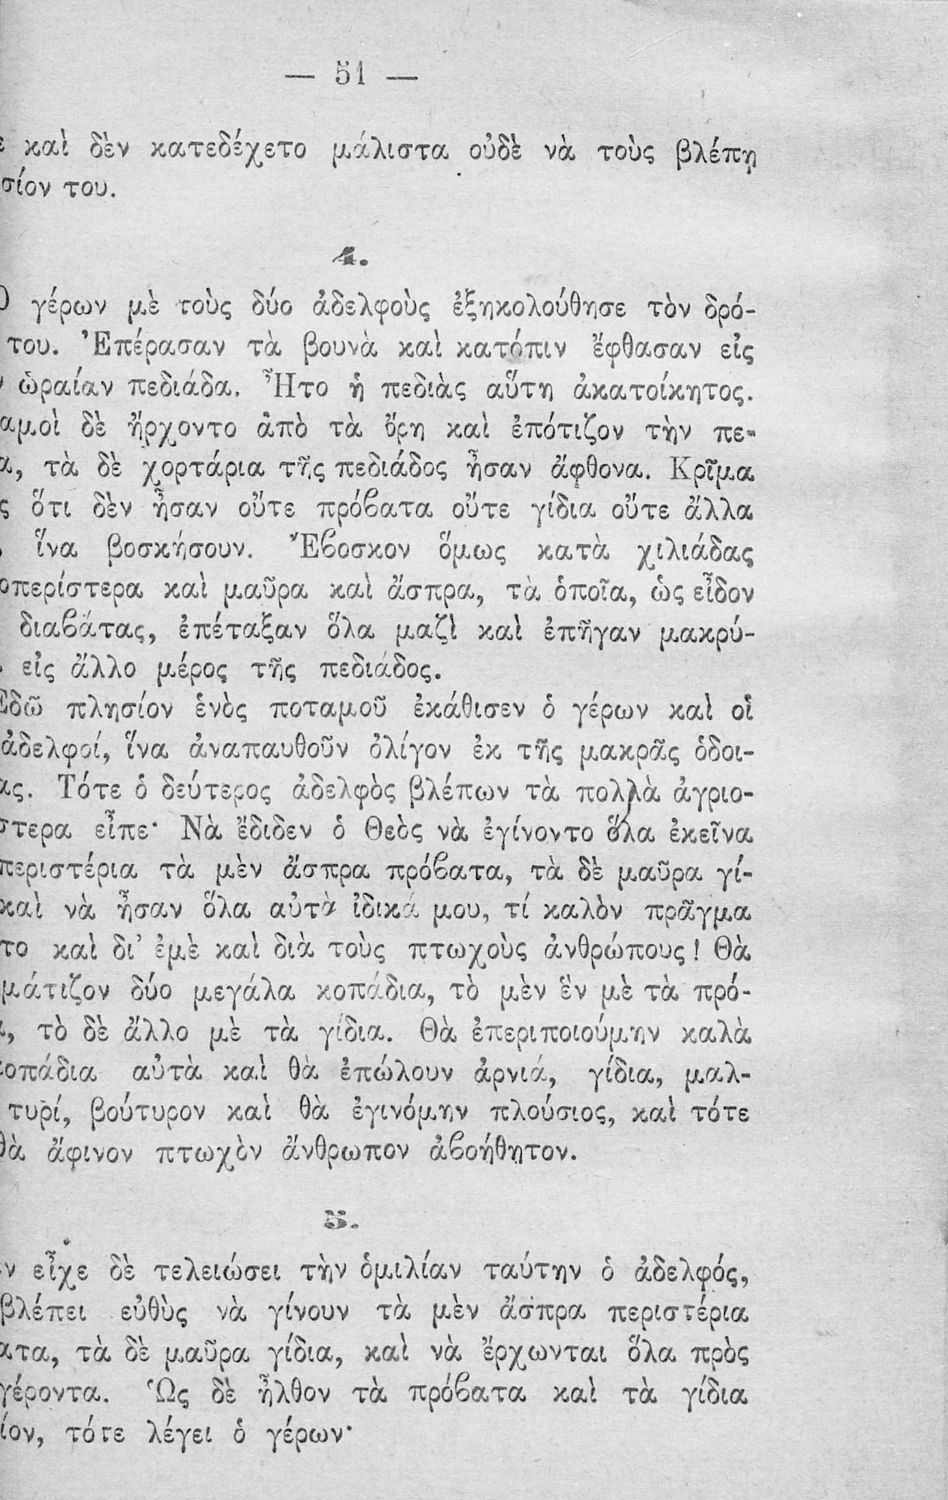 — 51 —
καὶ δὲν κατεδέχετο μάλιστα οὐδὲ νὰ τοὺς βλέπῃ
σίον του.
4.
γέρων μὲ τοὺς δύο ἀδελφοὺς ἐξηκολούθησε τὸν δρό-
του. Ἐπέρασαν τὰ βουνὰ καὶ κατόπιν ἔφθασαν εἰς
ὡραίαν πεδιάδα. Ἦτο ἡ πεδιὰς αὕτη ἀκατοίκητος.
αμοὶ δὲ ἤρχοντο ἀπὸ τὰ ὄρη καὶ ἐπότιζον τὴν πε-
α, τὰ δὲ χορτάρια τῆς πεδιάδος ἦσαν ἄφθονα. Κρῖμα
ς ὅτι δὲν ἦσαν οὔτε πρόβατα οὔτε γίδια οὔτε ἄλλα
ἵνα βοσκήσουν. Ἔβοσκον ὅμως κατὰ χιλιάδας
οπερίστερα καὶ μαῦρα καὶ ἄσπρα, τὰ ὁποῖα, ὡς εἶδον
διαβάτας, ἐπέταξαν ὅλα μαζὶ καὶ ἐπῆγαν μακρύ-
εἰς ἄλλο μέρος τῆς πεδιάδος.
Ἐδῶ πλησίον ἑνὸς ποταμοῦ ἐκάθισεν ὁ γέρων καὶ οἱ
ἀδελφοί, ἵνα ἀναπαυθοῦν ὀλίγον ἐκ τῆς μακρᾶς ὁδοι-
ας. Τότε ὁ δεύτερος ἀδελφὸς βλέπων τὰ πολλὰ ἀγριο-
στερα εἶπε· Νὰ ἔδιδεν ὁ Θεὸς νὰ ἐγίνοντο ὅλα ἐκεῖνα
περιστέρια τὰ μὲν ἄσπρα πρόβατα, τὰ δὲ μαῦρα γί-
καὶ νὰ ἦσαν ὅλα αὐτὰ ἰδικά μου, τί καλὸν πρᾶγμα
το καὶ δι' ἐμὲ καὶ διὰ τοὺς πτωχοὺς ἀνθρώπους! Θὰ
μάτιζον δύο μεγάλα κοπάδια, τὸ μὲν ἓν μὲ τὰ πρό-
, τὸ δὲ ἄλλο μὲ τὰ γίδια. Θὰ ἐπεριποιούμην καλὰ
οπάδια αὐτὰ καὶ θὰ ἐπώλουν ἀρνιά, γίδια, μαλ-
τυρί, βούτυρον καὶ θὰ ἐγινόμην πλούσιος, καὶ τότε
θὰ ἄφινον πτωχὸν ἄνθρωπον ἀβοήθητον.
5.
ν εἶχε δὲ τελειώσει τὴν ὁμιλίαν ταύτην ὁ ἀδελφός,
βλέπει εὐθὺς νὰ γίνουν τὰ μὲν ἄσπρα περιστέρια
ατα, τὰ δὲ μαῦρα γίδια, καὶ νὰ ἔρχωνται ὅλα πρὸς
γέροντα. Ὡς δὲ ἦλθον τὰ πρόβατα καὶ τὰ γίδια
ίον, τότε λέγει ὁ γέρων·